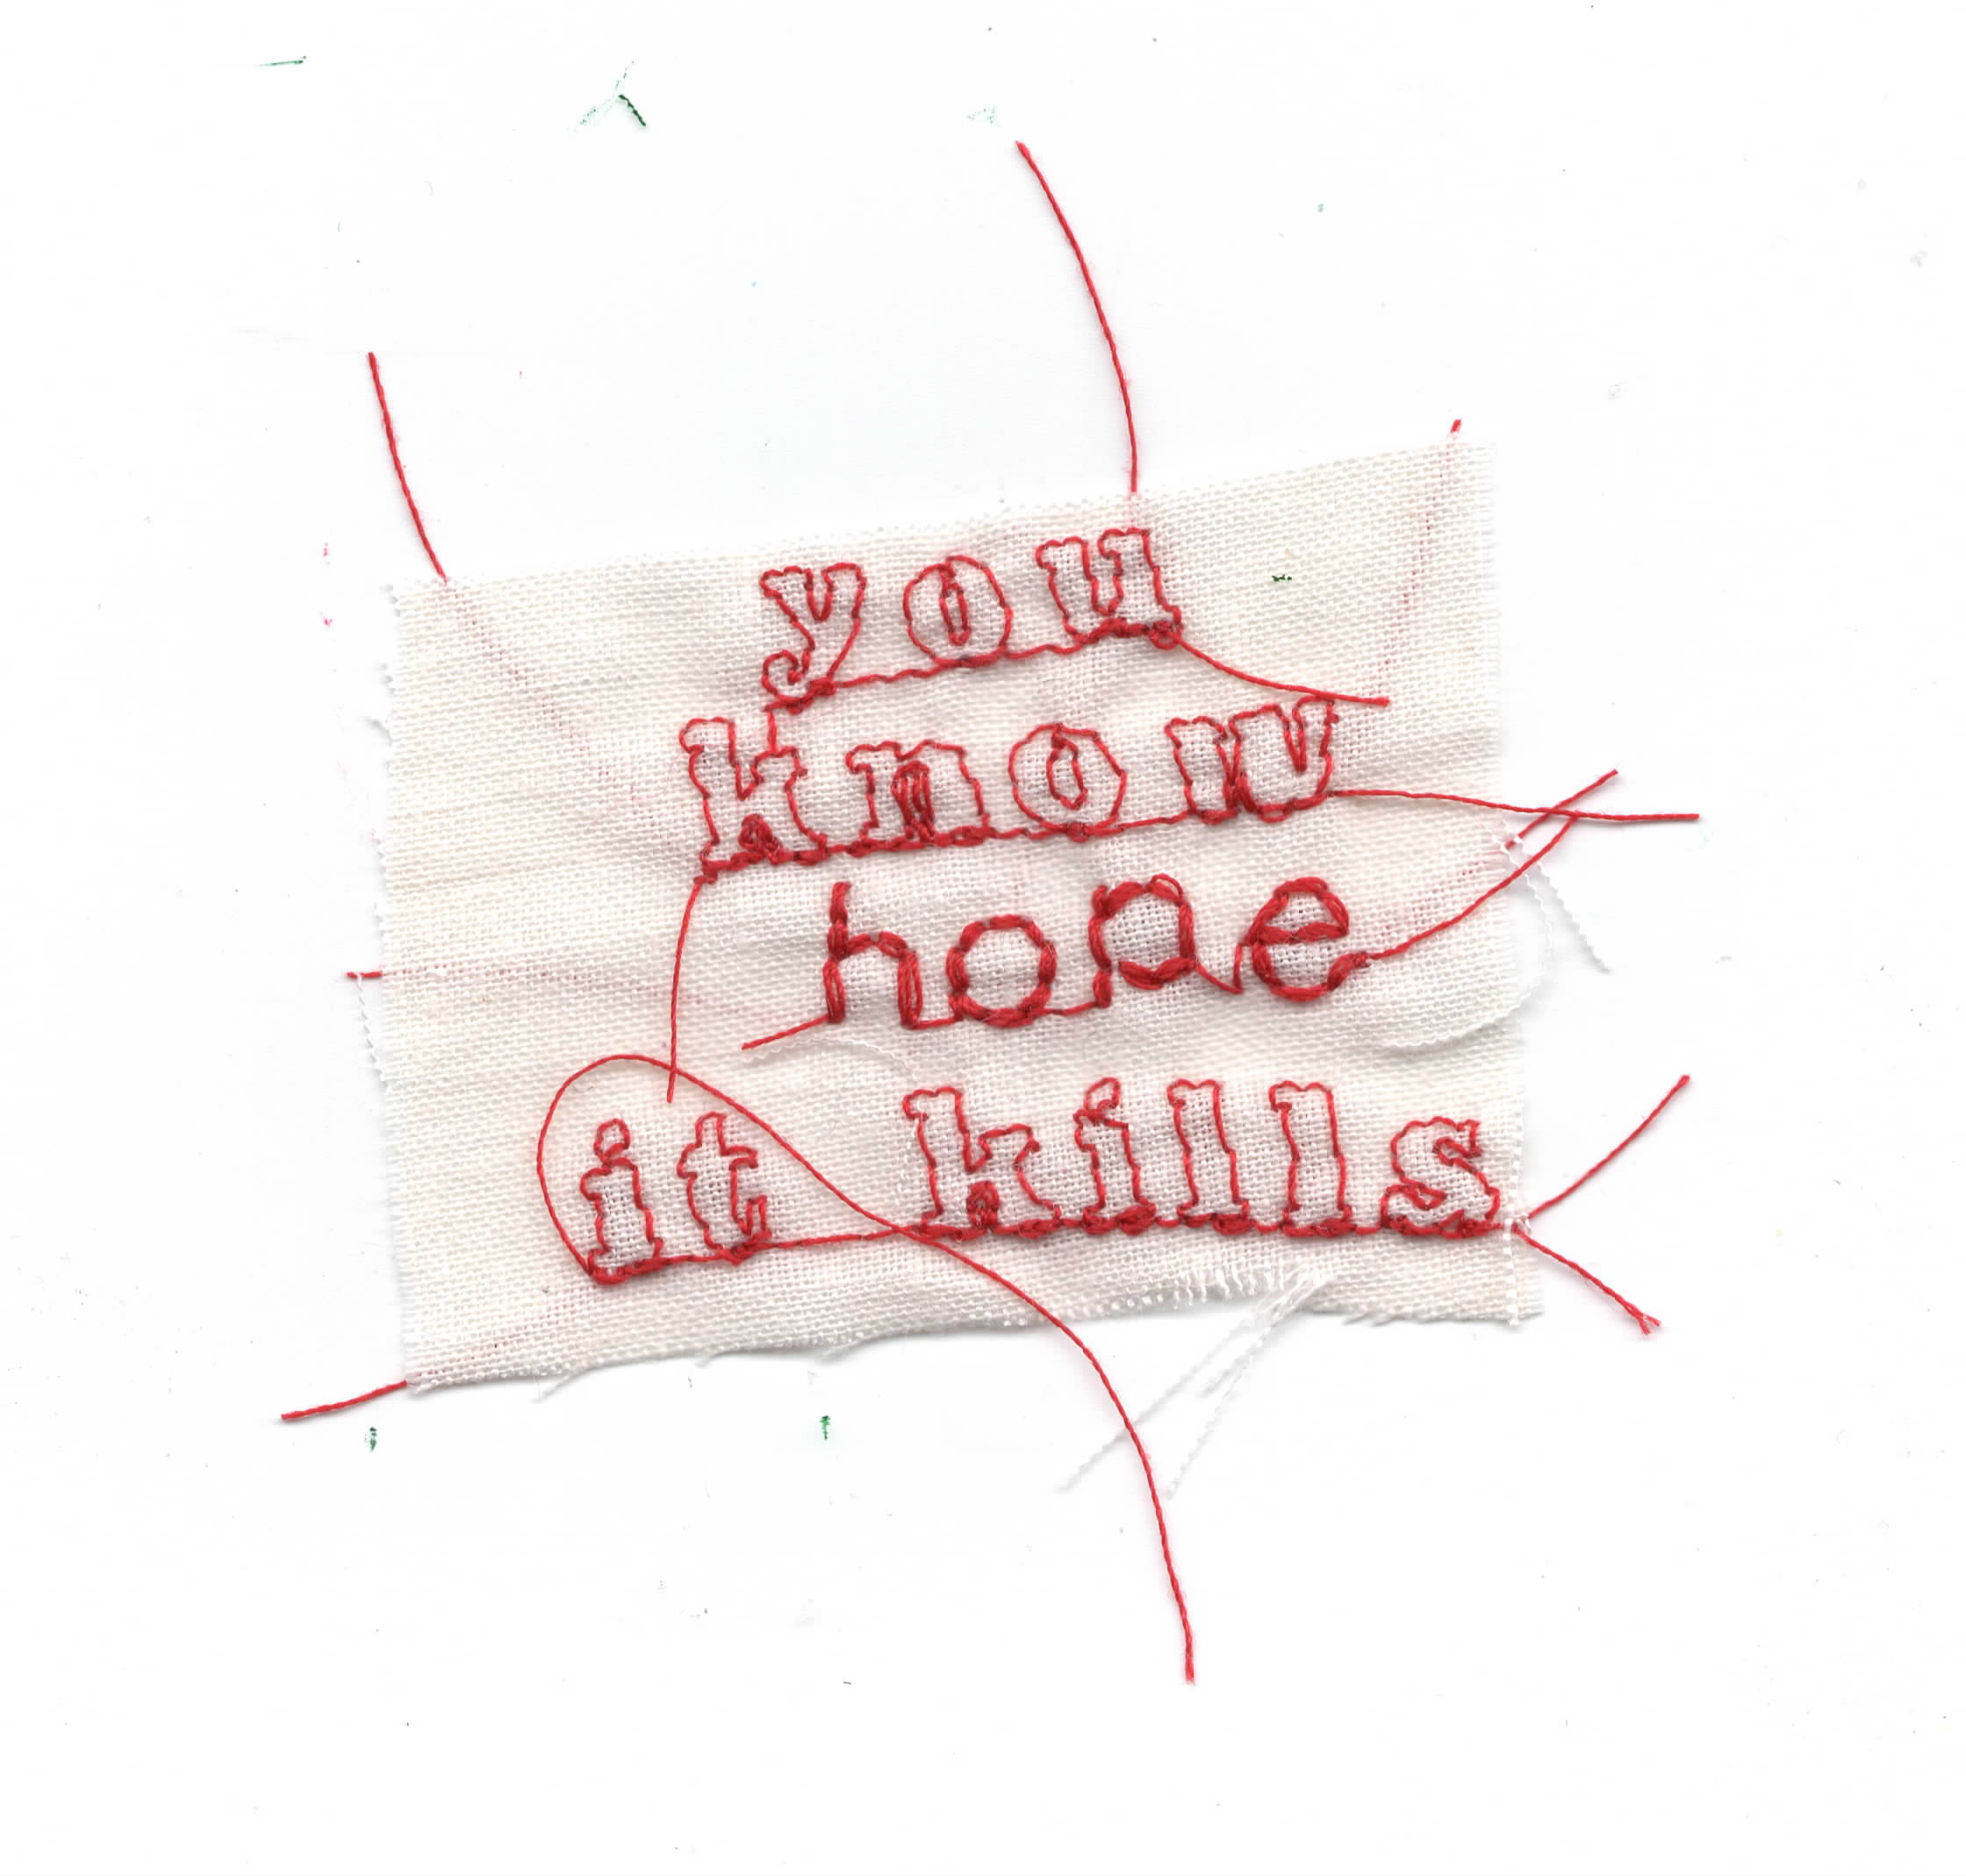 you
know
hope
it kills